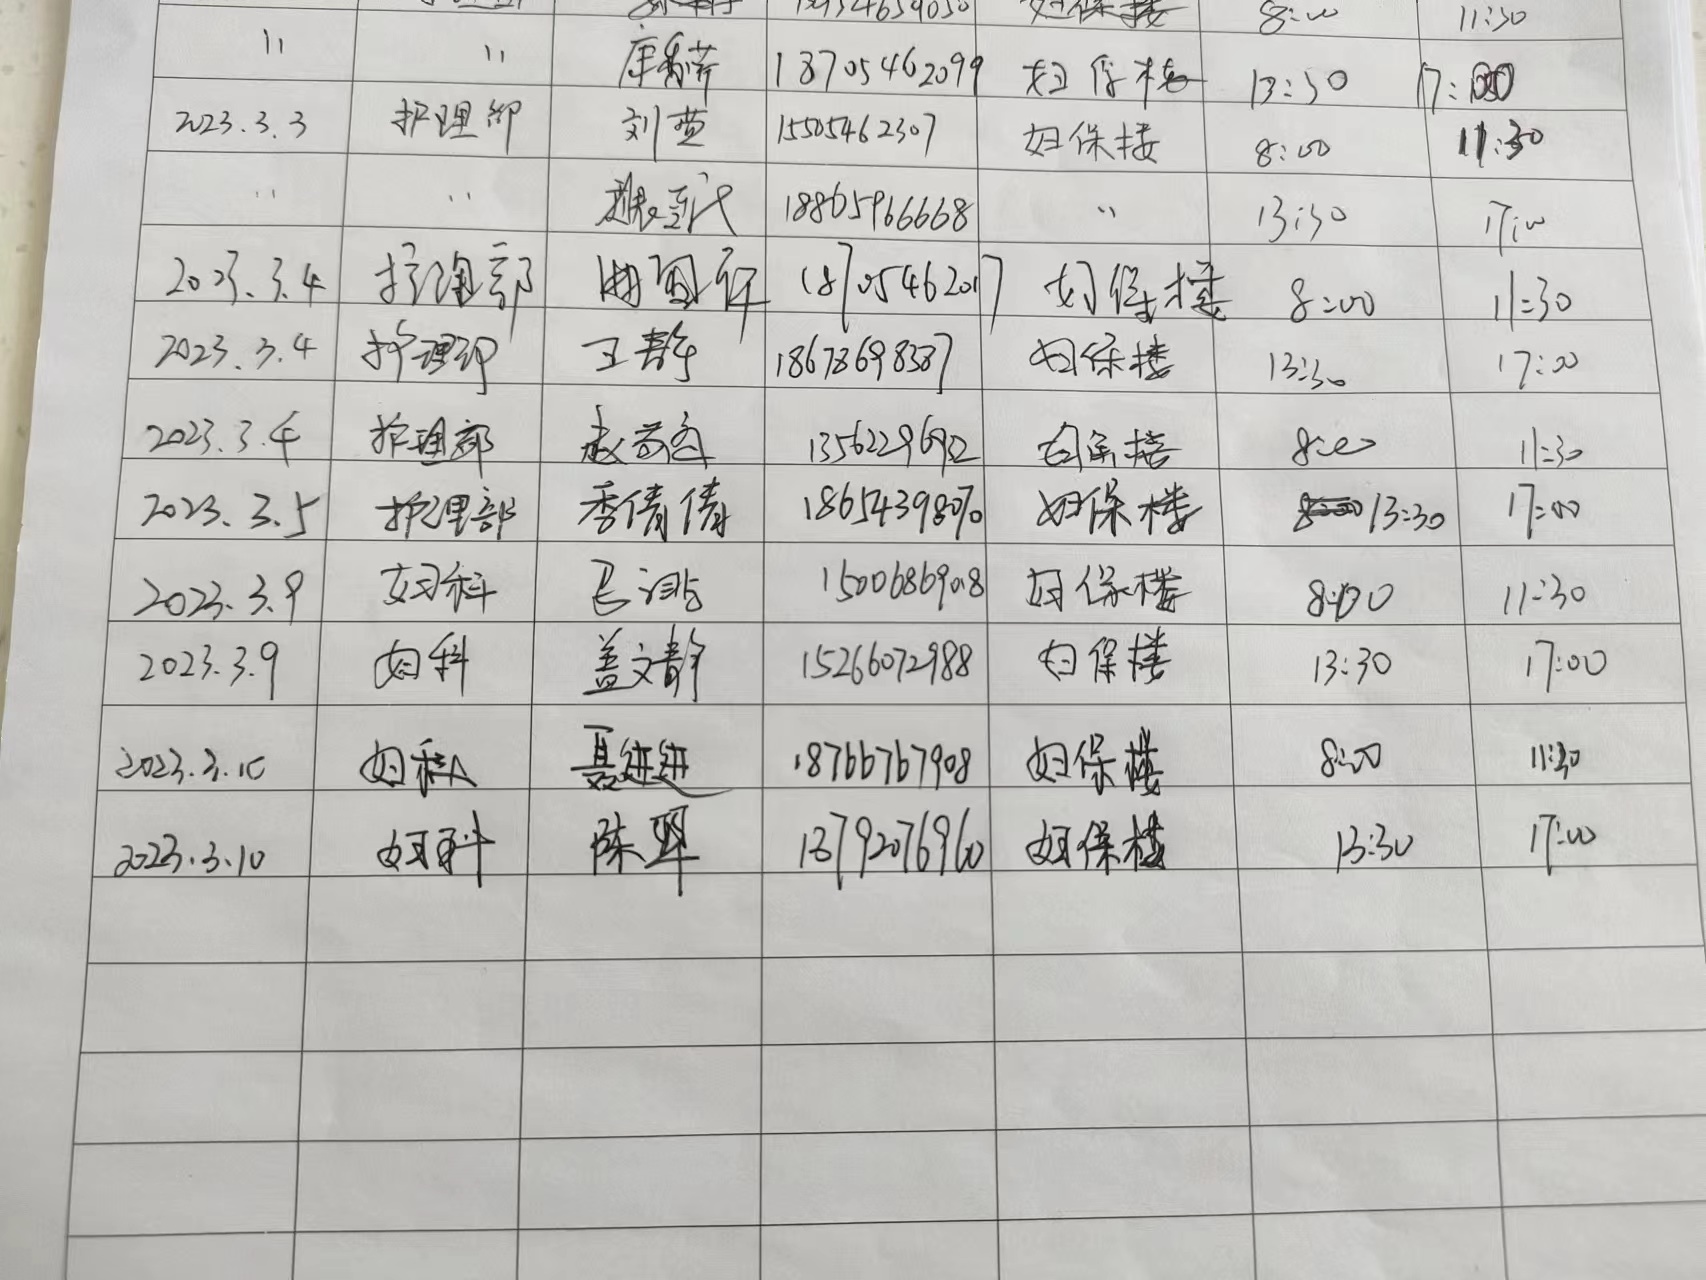 8:00 11:30
〃 〃 18705462099 妇保楼 13:30 17:00
2023.3.3 护理部 刘 15505462307 妇保楼 8:00 11:30
〃 〃 18865966668 〃 13:30 17:00
2023.3.4 护理部 18705462017 妇保楼 8:00 11:30
2023.3.4 护理部 王静 18678698387 妇保楼 13:30 17:00
2023.3.4 护理部 赵 13562296932 妇保楼 8:00 11:30
2023.3.5 护理部 季倩倩 妇保楼 13:30 17:00
2023.3.9 妇科 15006869018 妇保楼 8:00 11:30
2023.3.9 妇科 盖文静 15266072988 妇保楼 13:30 17:00
2023.3.10 妇科 聂进进 18766767908 妇保楼 8:00 11:30
2023.3.10 妇科 陈 13792076960 妇保楼 13:30 17:00